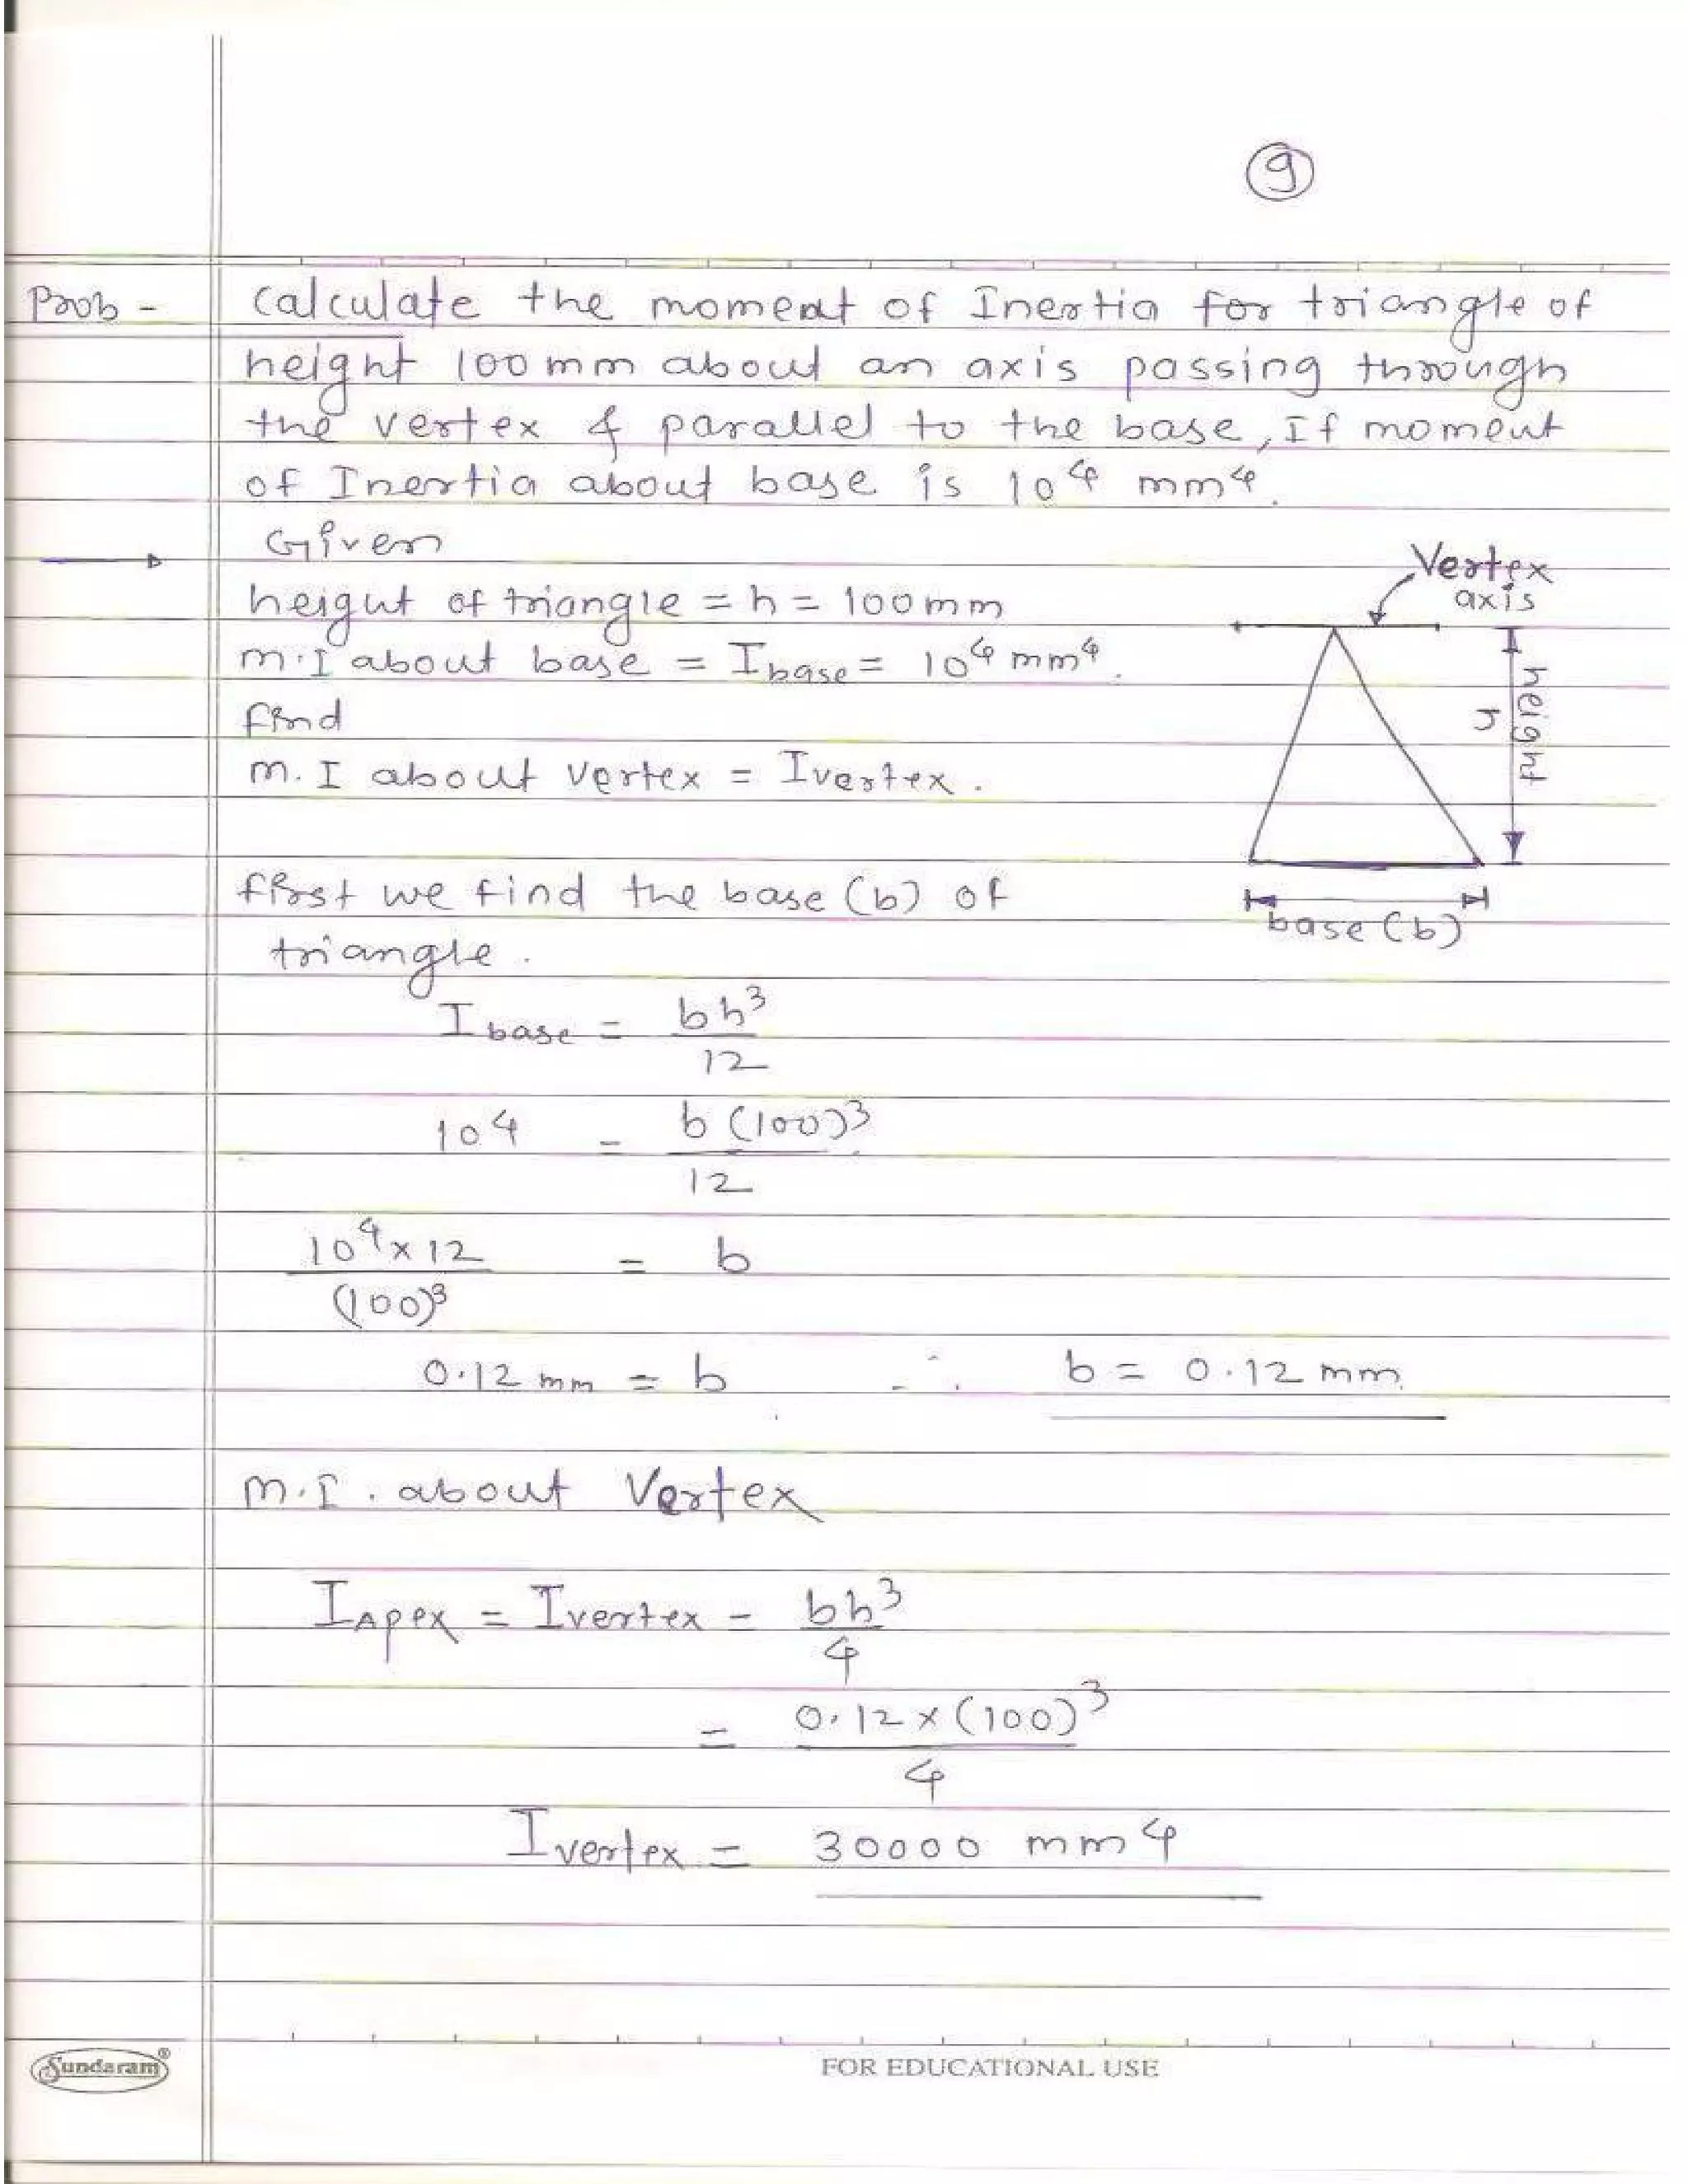 9
Prob - Calculate the moment of Inertia for triangle of
height 100mm about an axis passing through
the vertex & parallel to the base, If moment
of Inertia about base is 10⁴ mm⁴.
Given
Vertex
axis
height of triangle = h = 100mm
M.I about base = I base = 10⁴ mm⁴.
find
M.I about vertex = I vertex.
height
h
first we find the base (b) of
base (b)
triangle.
I base = bh³/12
10⁴ = b (100)³/12
10⁴ x 12/(100)³ = b
0.12 mm = b ∴ b = 0.12 mm.
M.I. about Vertex
I Apex = I vertex = bh³/4
= 0.12 x (100)³/4
I vertex = 30000 mm⁴
Sundaram®
FOR EDUCATIONAL USE